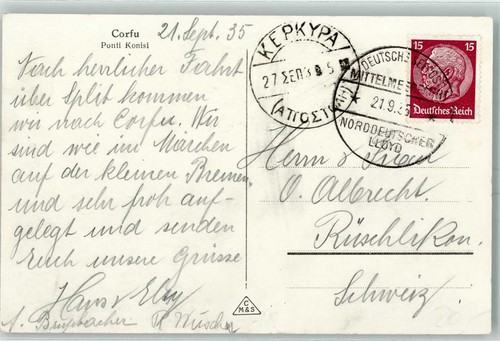 Corfu
Ponti Konisi
21. Sept. 35
Nach herrlicher Fahrt
über Split kommen
wir nach Corfu. Wir
sind wie im Märchen
auf der kleinen Bremen
und sehr froh auf-
gelegt und senden
Euch unsere Grüsse
Hans & Elsy
ΚΕΡΚΥΡΑ
27 ΣΕΠ 35
(ΑΠΟΣΤ
DEUTSCHE
MITTELMEE
21.9.35
NORDDEUTSCHER
LLOYD
15 15
Deutsches Reich
Herrn &
O. Albrecht.
Rüschlikon.
Schweiz.
C
M&S